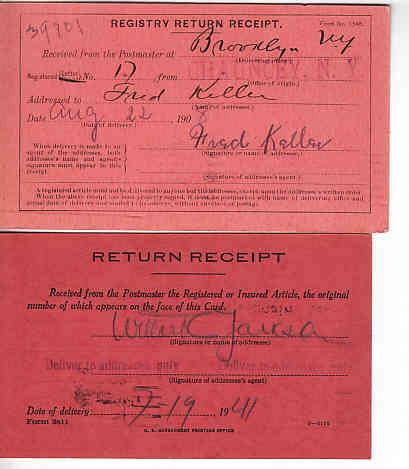 39701
REGISTRY RETURN RECEIPT.
Form No. 1548.
Received from the Postmaster at Brooklyn NY
Registered Letter No. 17 from N. Y.
(Office of origin.)
Addressed to Fred Keller
(Name of addressee.)
Date Aug 22 1908
(Date of delivery.)
When delivery is made to an
agent of the addressee, both
addressee's name and agent's
signature must appear in this
receipt.
Fred Keller
(Signature or name of addressee.)
(Signature of addressee's agent.)
A registered article must not be delivered to anyone but the addressee, except upon the addressee's written order.
When the above receipt has been properly signed, it must be postmarked with name of delivering office and
actual date of delivery and mailed to its address, without envelope or postage.
RETURN RECEIPT
Received from the Postmaster the Registered or Insured Article, the original
number of which appears on the face of this Card.
(Signature or name of addressee)
Deliver to addressee only Deliver to addressee only
(Signature of addressee's agent)
Date of delivery 7-19 1941
Form 3811
U. S. GOVERNMENT PRINTING OFFICE